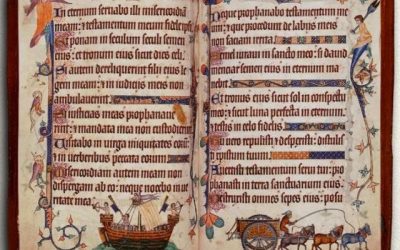 In eternum seruabo illi misericordiā
meam: et testamentum meum fidele ipsi
Et ponam in seculum seculi semen
eius: et tronum eius sicut dies celi
Si autem dereliquerint filii eius le
gem meam: et in iudiciis meis non
ambulauerint
Si iusticias meas prophanauerint
et mandata mea non custodierint
Uisitabo in uirga iniquitates eorum
et in uerberibus peccata eorum
Misericordiam autem meam non
dispergam ab eo: neque nocebo in ue
ritate mea
Neque prophanabo testamentum me
um: et que procedunt de labiis meis
non faciam irrita
iuraui in sancto meo: si dauid
menciar semen eius in eternum ma
nebit
Et tronus eius sicut sol in conspectu
meo: et sicut luna perfecta in eternum
et testis in celo fidelis
Tu uero repulisti et despexisti: distulisti
christum tuum
Auertisti testamentum serui tui: pro
phanasti in terra sanctuarium eius
Destruxisti omnes sepes eius: posu